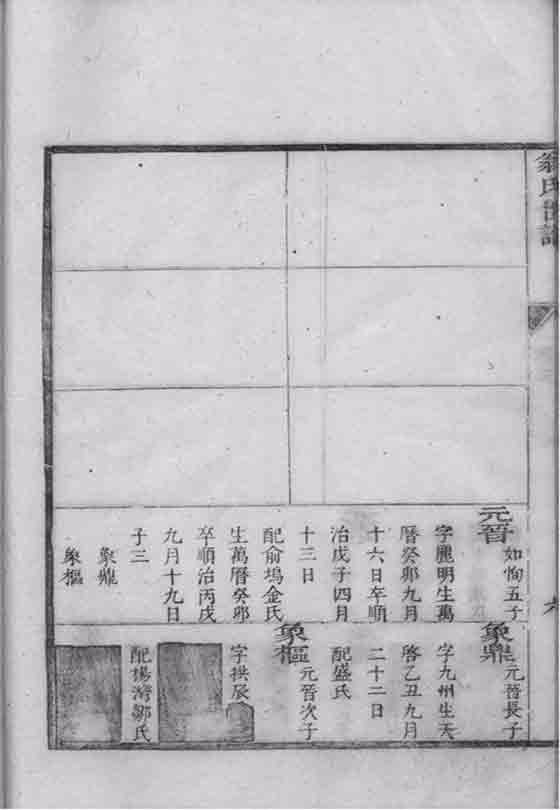 翁氏世譜
元晉 如恂五子
字麗明生萬
曆癸卯九月
十六日卒順
治戊子四月
十三日
配俞塢金氏
生萬曆癸卯
卒順治丙戌
九月十九日
子三
象鼎
象樞
象鼎 元晉長子
字九州生天
啓乙丑九月
二十二日
配盛氏
象樞 元晉次子
字拱辰
配楊灣鄒氏